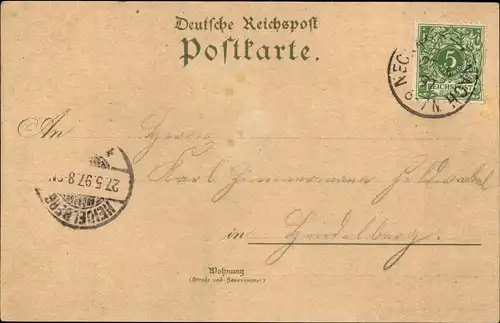 Deutsche Reichspost
Postkarte.
5
REICHSPOST
An Herrn
Karl Zimmermann
in Heidelberg.
27.5.97.8-9N.
HEIDELBERG
Wohnung
(Straße und Hausnummer)